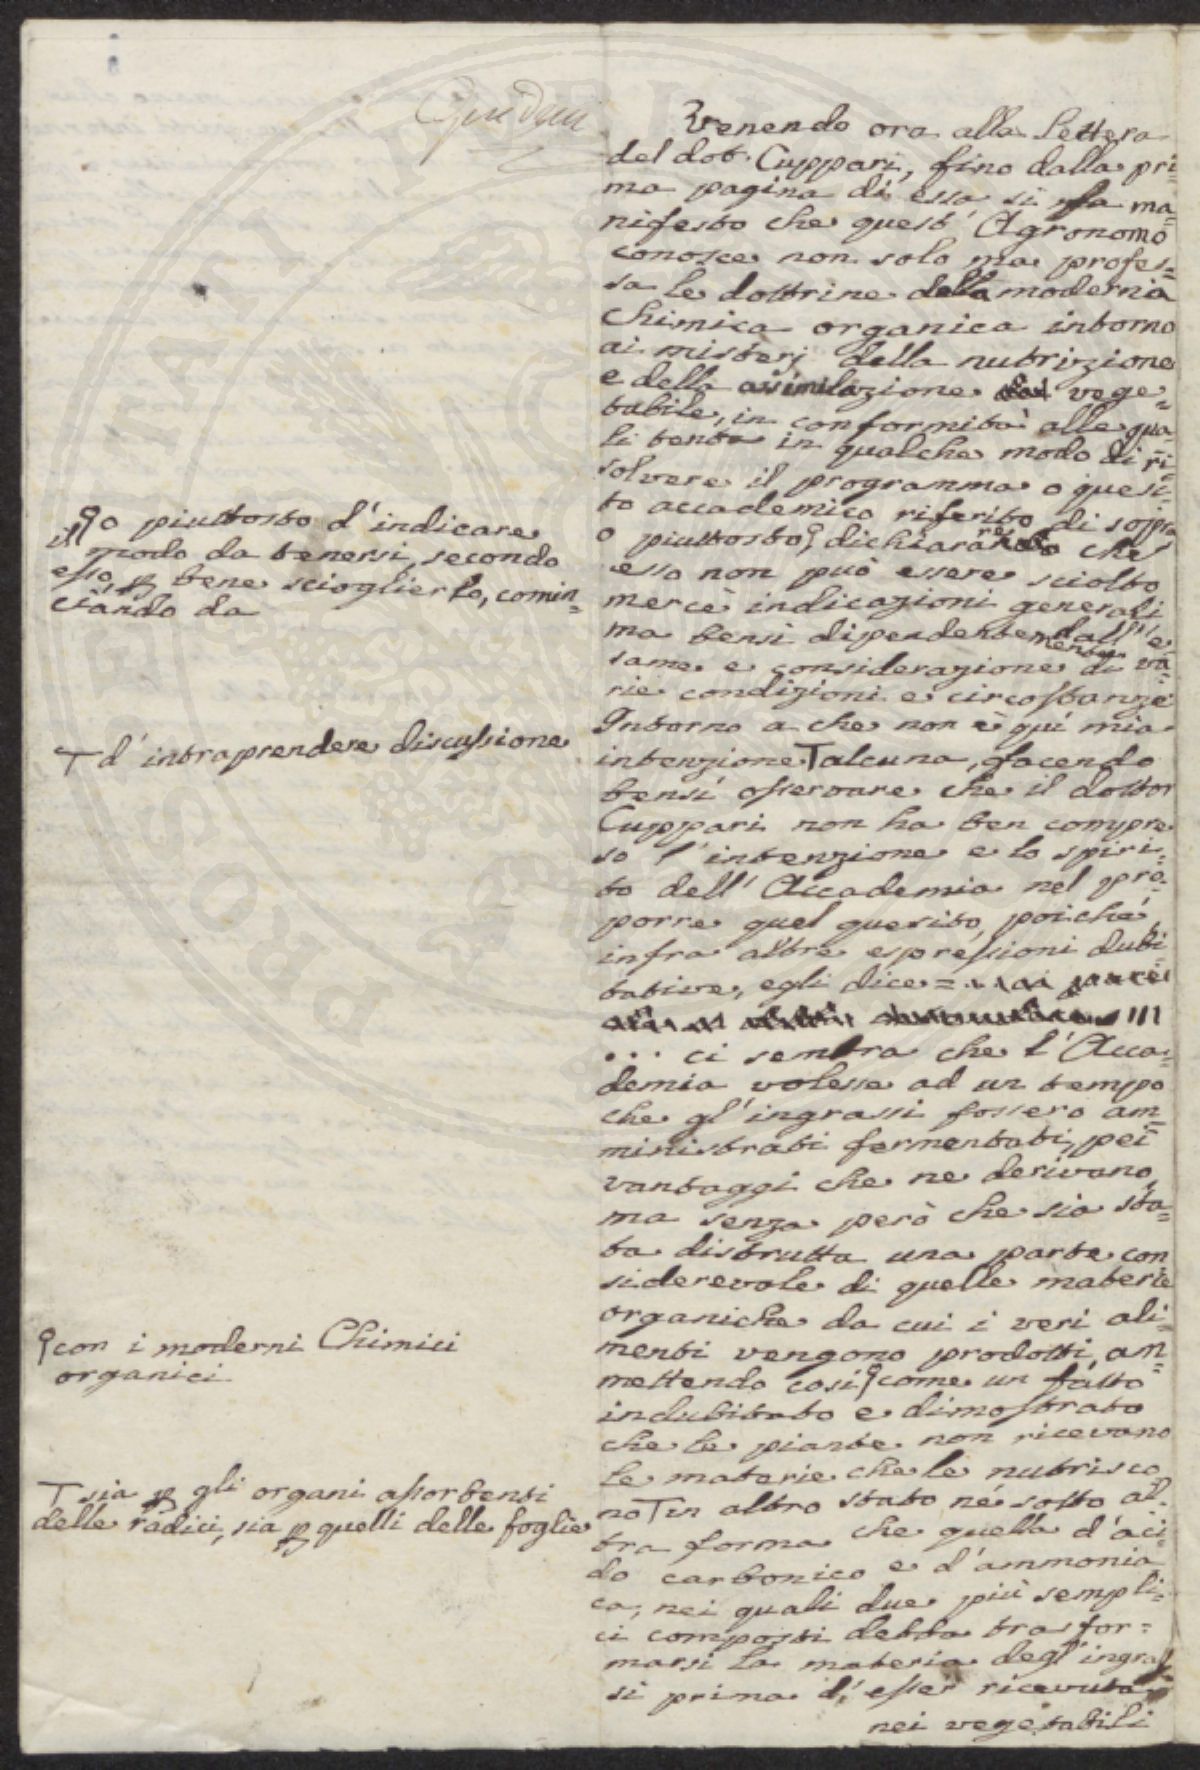 Venendo ora alla Lettera
del dot. Cuppari, fino dalla pri=
ma pagina di essa si fa ma=
nifesto che quest' Agronomo
conosce non solo ma profes=
sa le dottrine della moderna
Chimica organica intorno
ai misterj della nutrizione
e della assimilazione vege=
tabile, in conformità alle qua=
li tenta in qualche modo di ri=
solvere il programma o quesi=
to accademico riferito di sopra
o piuttosto dichiarare che
esso non può essere sciolto
mercè indicazioni generali
ma bensì dipendentemente dall'e=
same e considerazione di va=
rie condizioni e circostanze
Intorno a che non è quì mia
intenzione T alcuna, facendo
bensì osservare che il dottor
Cuppari non ha ben compre=
so l'intenzione e lo spiri=
to dell'Accademia nel pro=
porre quel quesito, poichè
infra altre espressioni dubi=
tative, egli dice =
... ci sembra che l'Acca=
demia volesse ad un tempo
che gl'ingrassi fossero am=
ministrati fermentati, pei
vantaggi che ne derivano,
ma senza però che sia sta=
ta distrutta una parte con
siderevole di quelle materie
organiche da cui i veri ali=
menti vengono prodotti, am=
mettendo così come un fatto
indubitato e dimostrato
che le piante non ricevano
le materie che le nutrisco
no T in altro stato nè sotto al=
tra forma che quella d'aci=
do carbonico e d'ammonia
ca, nei quali due più sempli=
ci composti debba trasfor=
marsi la materia degl'ingras
si prima d'esser ricevuta
nei vegetabili
o piuttosto d'indicare
il modo da tenersi, secondo
esso, p bene scioglierlo, comin=
ciando da
T d'intraprendere discussione
con i moderni Chimici
organici
T sia p gli organi assorbenti
delle radici, sia p quelli delle foglie